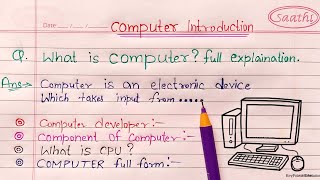 Saathi
Date
Computer Introduction
Q. What is computer? full explaination.
Ans→ Computer is an electronic device
Which takes input from .....
Computer developer:-
Component of Computer:-
What is CPU?
COMPUTER full form:-